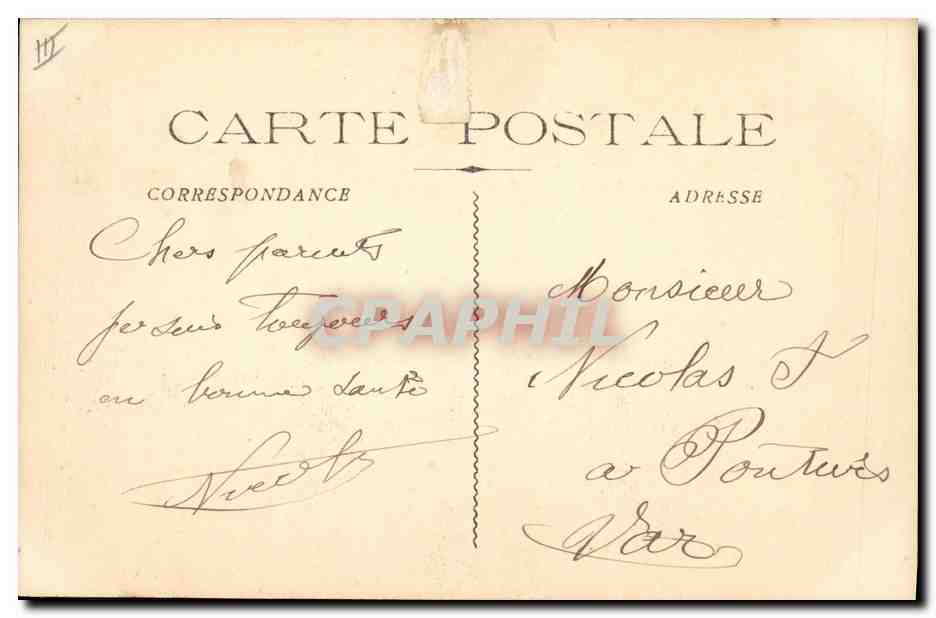 III
CARTE POSTALE
CORRESPONDANCE
Chers parents
je suis toujours
en bonne santé
Nicolas
ADRESSE
Monsieur
Nicolas F
a Pontevès
Var
CPAPHIL